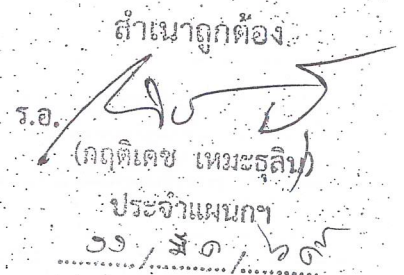 สำเนาถูกต้อง
ร.อ.
(กฤติเดช เหมะธุลิน)
ประจำแผนกฯ
๑๑ / มี.ค. /